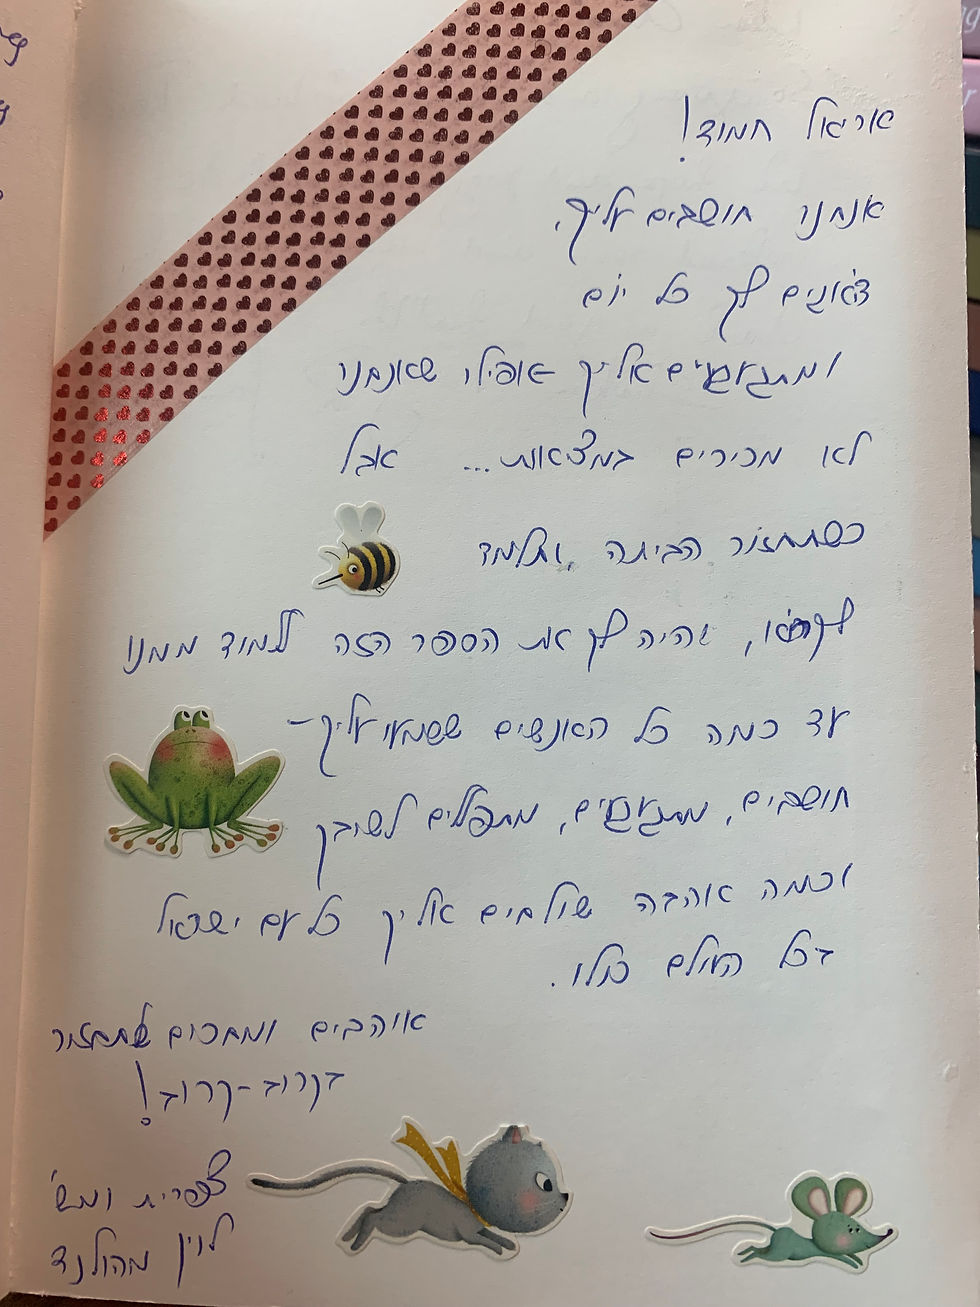 אריאל חמוד!
אנחנו חושבים עליך,
דואגים לך כל יום
ומתגעגעים אליך אפילו שאנחנו
לא מכירים במציאות... אבל
כשתחזור הביתה, ותלמד
לקרוא, יהיה לך את הספר הזה ללמוד ממנו
עד כמה כל האנשים ששמעו עליך -
חושבים, מתגעגעים, מתפללים לשובך
וכמה אהבה שולחים אליך כל עם ישראל
בכל העולם כולו.
אוהבים ומחכים שתחזור
בקרוב-קרוב!
צפרית ומש'
לוין מהולנד